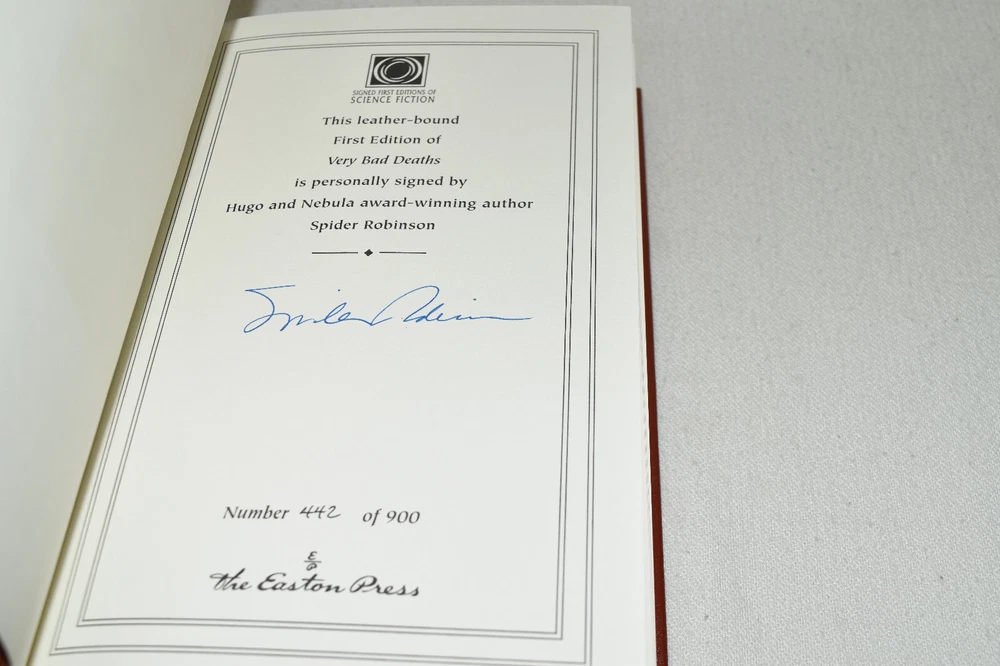 SIGNED FIRST EDITIONS OF
SCIENCE FICTION
This leather-bound
First Edition of
Very Bad Deaths
is personally signed by
Hugo and Nebula award-winning author
Spider Robinson
Spider Robinson
Number 442 of 900
E
P
the Easton Press